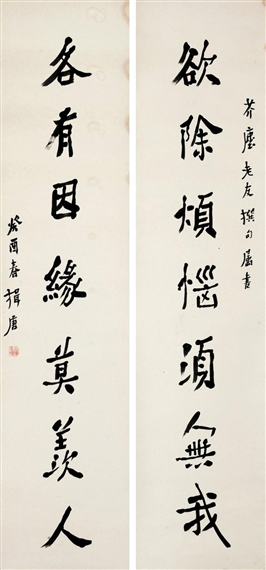 芥塵老友撰句屬書
欲除煩惱須無我
各有因緣莫羨人
癸酉春揖唐